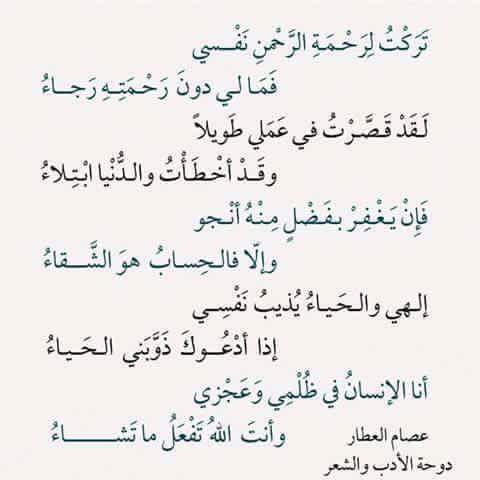 تَرَكْتُ لِرَحْمَةِ الرَّحْمنِ نَفْـــسي
فَمَا لـي دونَ رَحْـمَتِـهِ رَجـــاءُ
لَـقَدْ قَـصَّـرْتُ فـي عَمَلي طَويلاً
وقَــدْ أخْـطَـأْتُ والـدُّنْيا ابْـتِـلاءُ
فَإِنْ يَـغْـفِـرْ بـفَـضْلٍ مِـنْـهُ أنْـجو
وإلّا فالـحِسـابُ هوَ الشَّــــقاءُ
إلـهي والـحَـيـاءُ يُذيبُ نَفْسِــي
إذا أدْعُـــوكَ ذَوَّبَني الـحَـيـاءُ
أنا الإنسانُ في ظُلْمِي وَعَجْزي
وأنتَ اللهُ تَفْعَلُ ما تَشــــــــاءُ
عصام العطار
دوحة الأدب والشعر